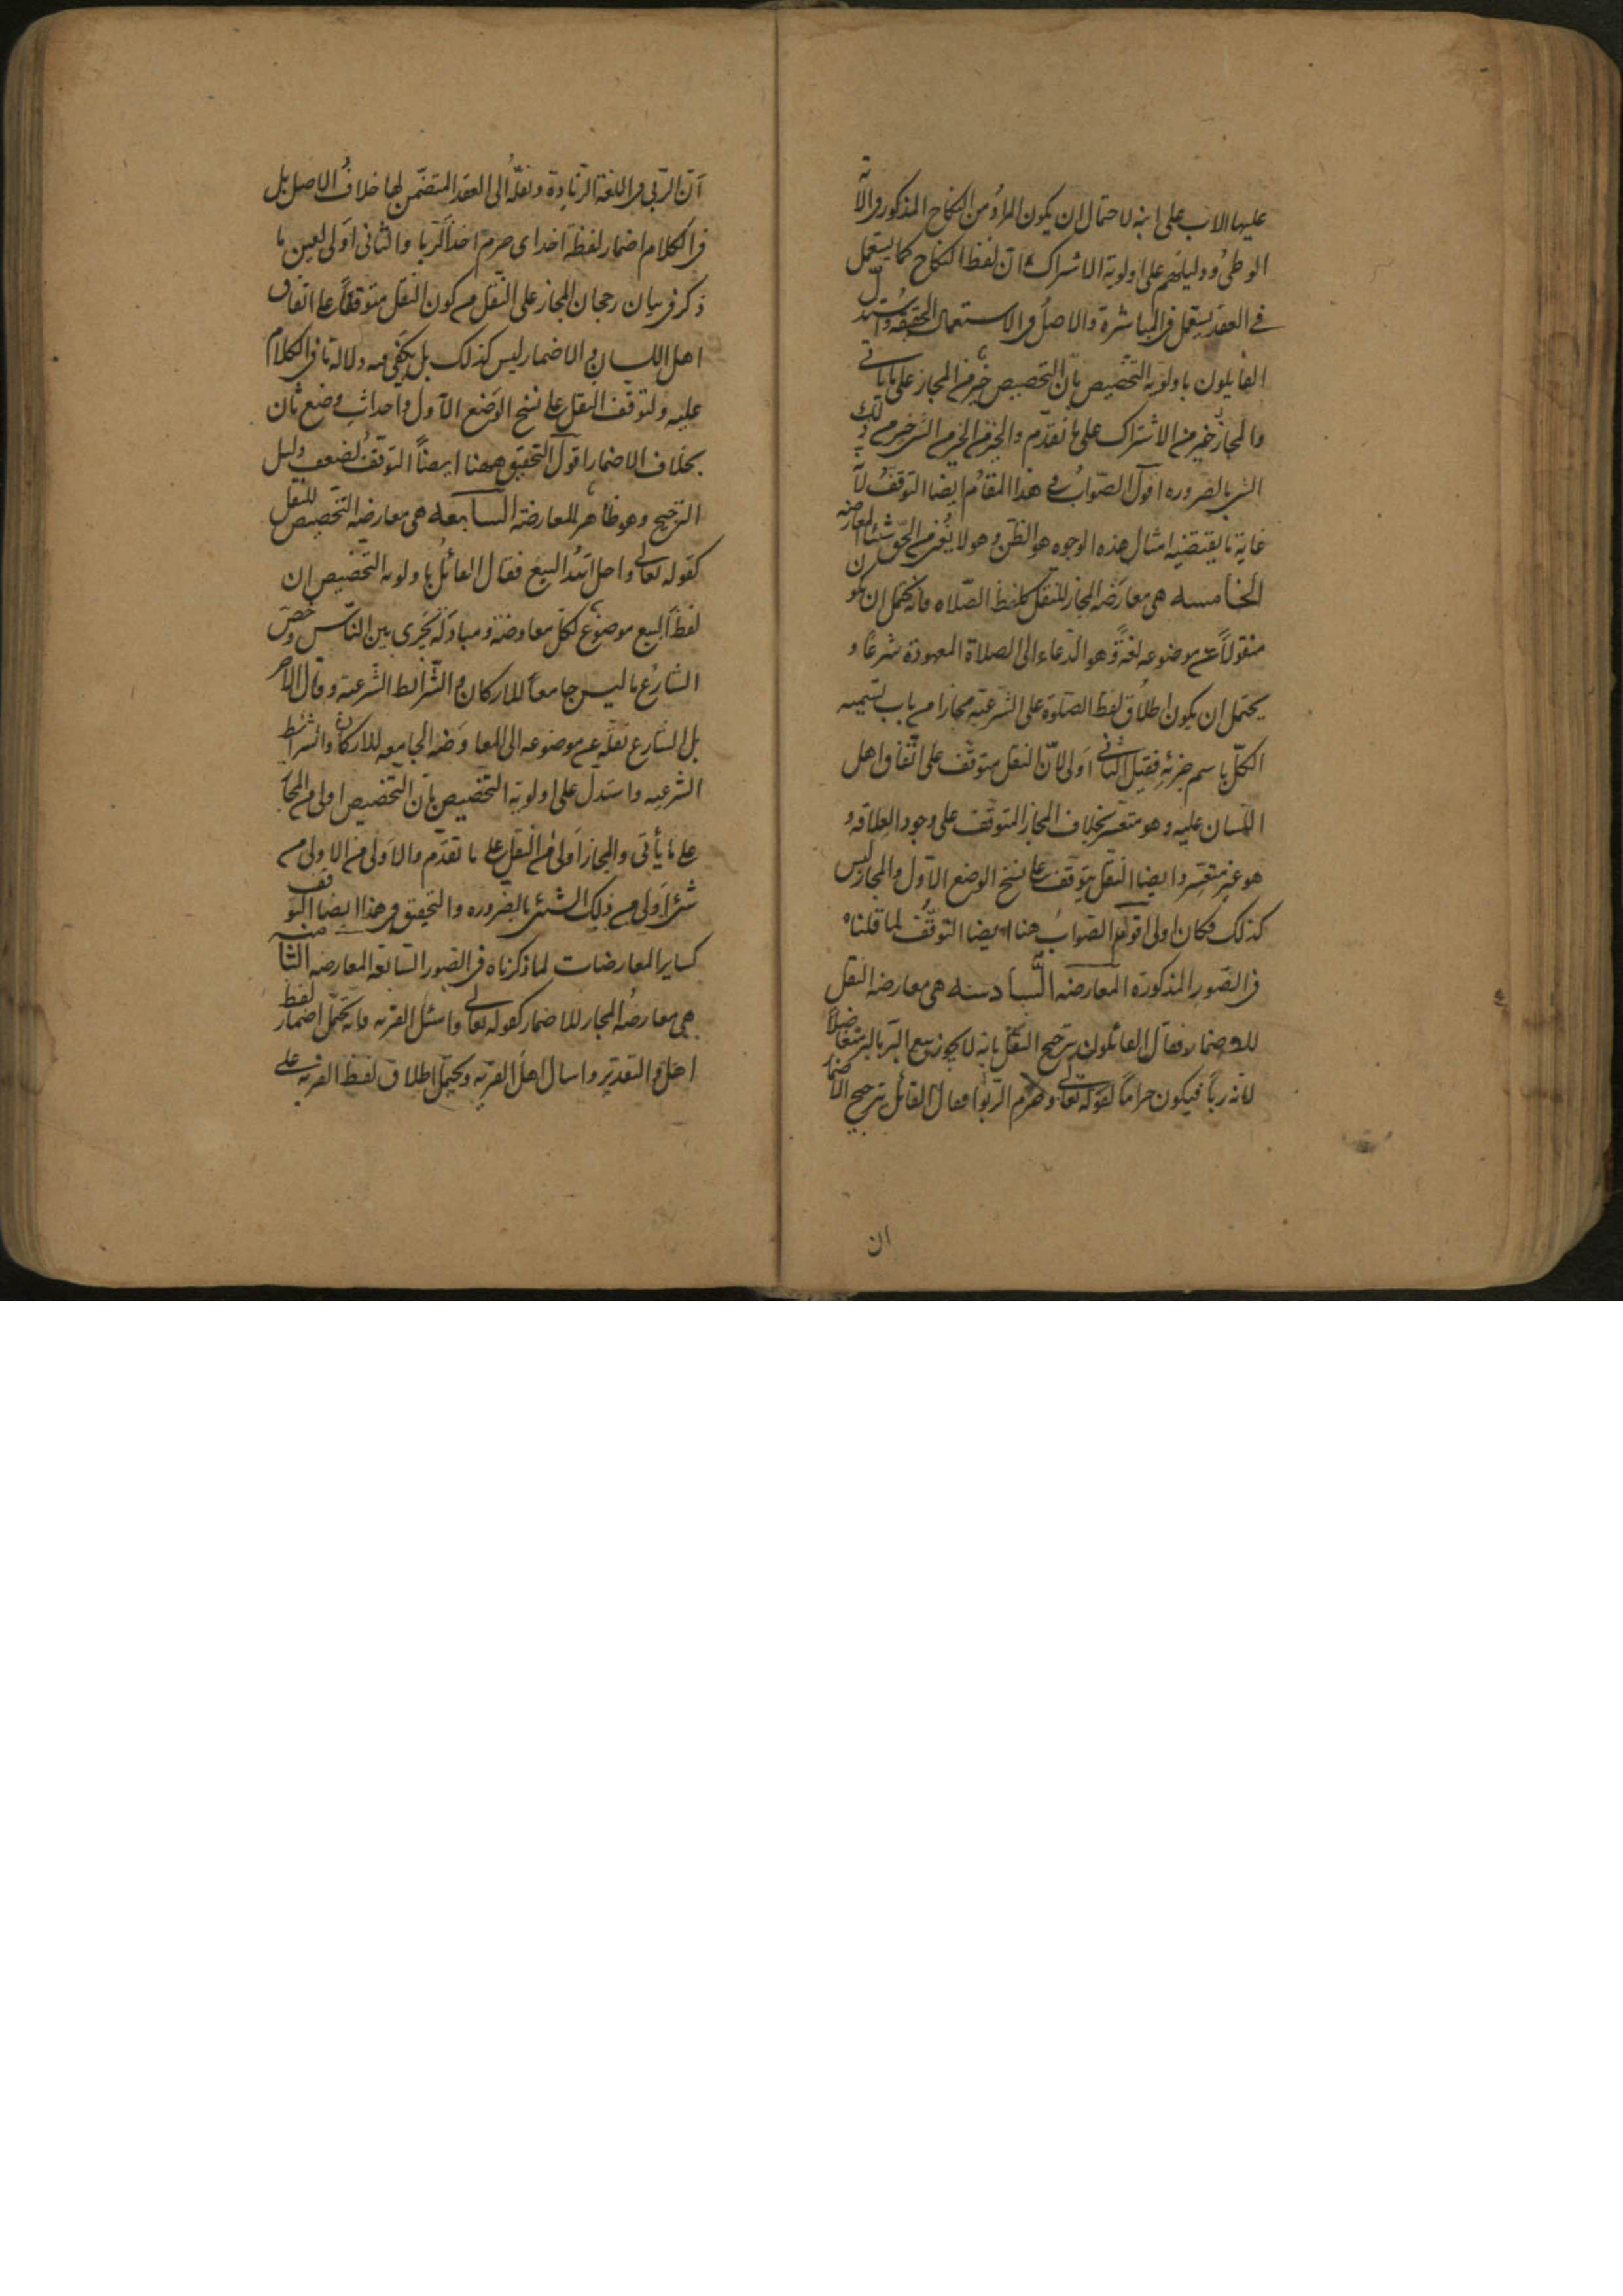 عليها الاب على ابنه لاحتمال ان يكون المراد من النكاح المذكور فى الاية
الوطى ودليلهم على اولوية الاشتراك ان لفظ النكاح كما يستعمل
فى العقد يستعمل فى المباشرة والاصل فى الاستعمال الحقيقة واستدل
القايلون باولوية التخصيص بان التخصيص خير من المجاز على ما ياتى
والمجاز خير من الاشتراك على ما تقدم والخير من الخير من الشى خير من ذلك
الشى بالضروره اقول الصواب فى هذا المقام ايضا التوقف لان
غاية ما يقتضيه امثال هذه الوجوه هو الظن وهو لا يغنى من الحق شيئا المعارضه
الخامسه هى معارضه المجاز للنقل كلفظ الصلاه فانه يحتمل ان يكون
منقولاً عن موضوعه لغة وهو الدعاء الى الصلاة المعهودة شرعاً و
يحتمل ان يكون اطلاق لفظ الصلوة على الشرعيه مجازا من باب تسميه
الكل باسم جزئه فقيل الثانى اولى لان النقل متوقف على اتفاق اهل
اللسان عليه وهو متعسر بخلاف المجاز المتوقف على وجود العلاقه و
هو غير متعسر وايضا النقل يتوقف على نسخ الوضع الاول والمجاز ليس
كذلك فكان اولى اقول الصواب هنا ايضا التوقف لما قلناه
فى الصور المذكورة المعارضه السادسه هى معارضه النقل
للاضمار فقال القائلون بترجيح النقل بانه لا يجوز بيع البر بالبر متفاضلاً
لانه رباً فيكون حراماً لقوله تعالى وحرم الربوا فقال القائل بترجيح الاضمار
ان
ان الربى فى اللغة الزيادة ونقله الى العقد المتضمن لها خلاف الاصل بل
فى الكلام اضمار لفظة اخذ اى حرم اخذ الربا والثانى اولى لعين ما
ذكر فى بيان رجحان المجاز على النقل من كون النقل متوقفاً على اتفاق
اهل اللسان والاضمار ليس كذلك بل يكفى فيه دلالة ما فى الكلام
عليه ولتوقف النقل على نسخ الوضع الاول واحداث وضع ثان
بخلاف الاضمار اقول التحقيق ههنا ايضاً التوقف لضعف دليل
الترجيح وهو ظاهر المعارضة السابعه هى معارضه التخصيص للنقل
كقوله تعالى واحل الله البيع فقال القائل باولويه التخصيص ان
لفظ البيع موضوع لكل معاوضة ومبادلة يجرى بين الناس وخص
الشارع ما ليس جامعاً للاركان والشرائط الشرعية وقال الاخر
بل الشارع نقله عن موضوعه الى المعاوضه الجامعه للاركان والشرائط
الشرعيه واستدل على اولوية التخصيص بان التخصيص اولى من المجاز
على ما يأتى والمجاز اولى من النقل على ما تقدم والاولى من الاولى من
شئ اولى من ذلك الشئ بالضروره والتحقيق فى هذا ايضا التوقف
كساير المعارضات لما ذكرناه فى الصور السابقه المعارضه الثامنه
هى معارضه المجاز للاضمار كقوله تعالى واسئل القريه فانه يحتمل اضمار لفظ
اهل والتقدير واسال اهل القريه ويحتمل اطلاق لفظ القريه على